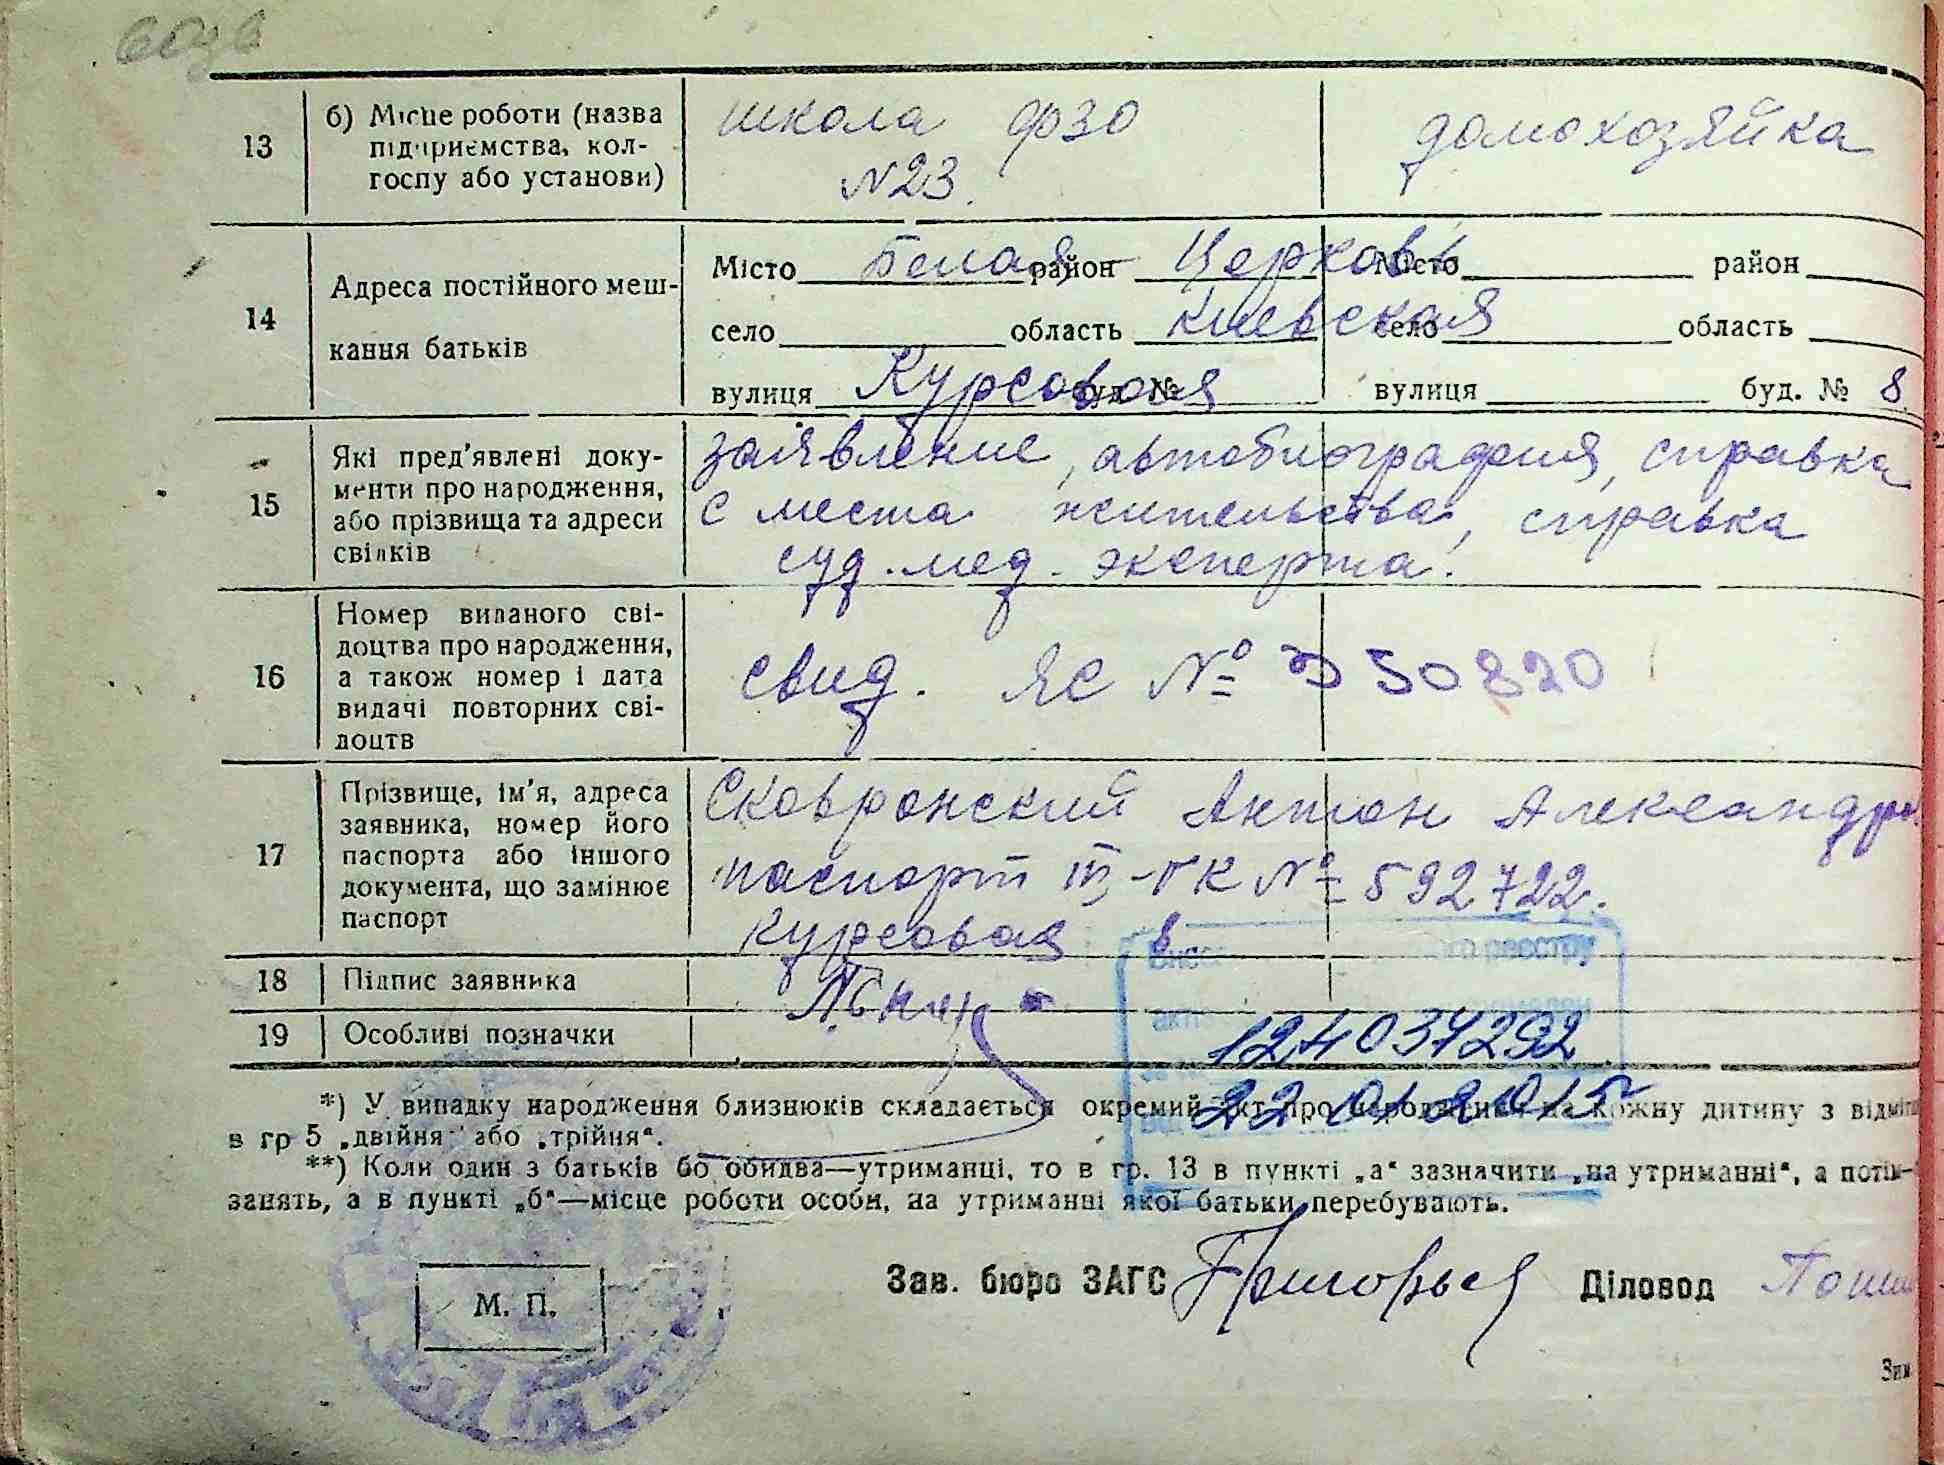 13
б) Місце роботи (назва
підприємства, кол-
госпу або установи)
школа ФЗО
N23.
домохозяйка
14
Адреса постійного меш-
кання батьків
Місто Белая район Церковь Місто район
село область Киевская село область
вулиця Курсовая буд. № вулиця буд. № 8
15
Які пред'явлені доку-
менти про народження,
або прізвища та адреси
свідків
заявление, автобиография, справка
с места жительства, справка
суд. мед. эксперта.
16
Номер виданого сві-
доцтва про народження,
а також номер і дата
видачі повторних сві-
доцтв
свид. ЯС № 50820
17
Прізвище, ім'я, адреса
заявника, номер його
паспорта або іншого
документа, що замінює
паспорт
Сковронский Антон Александр
паспорт III-ГК № 592722.
Курсовая 8
18 Підпис заявника
19 Особливі позначки
реєстру
124037292
22 01 2015
*) У випадку народження близнюків складається окремий акт про народження на кожну дитину з відміт
в гр 5 „двійня" або „трійня".
**) Коли один з батьків бо обидва—утриманці, то в гр. 13 в пункті „а" зазначити „на утриманні", а потім-
занять, а в пункті „б"—місце роботи особи, на утриманні якої батьки перебувають.
М. П.
Зав. бюро ЗАГС Діловод